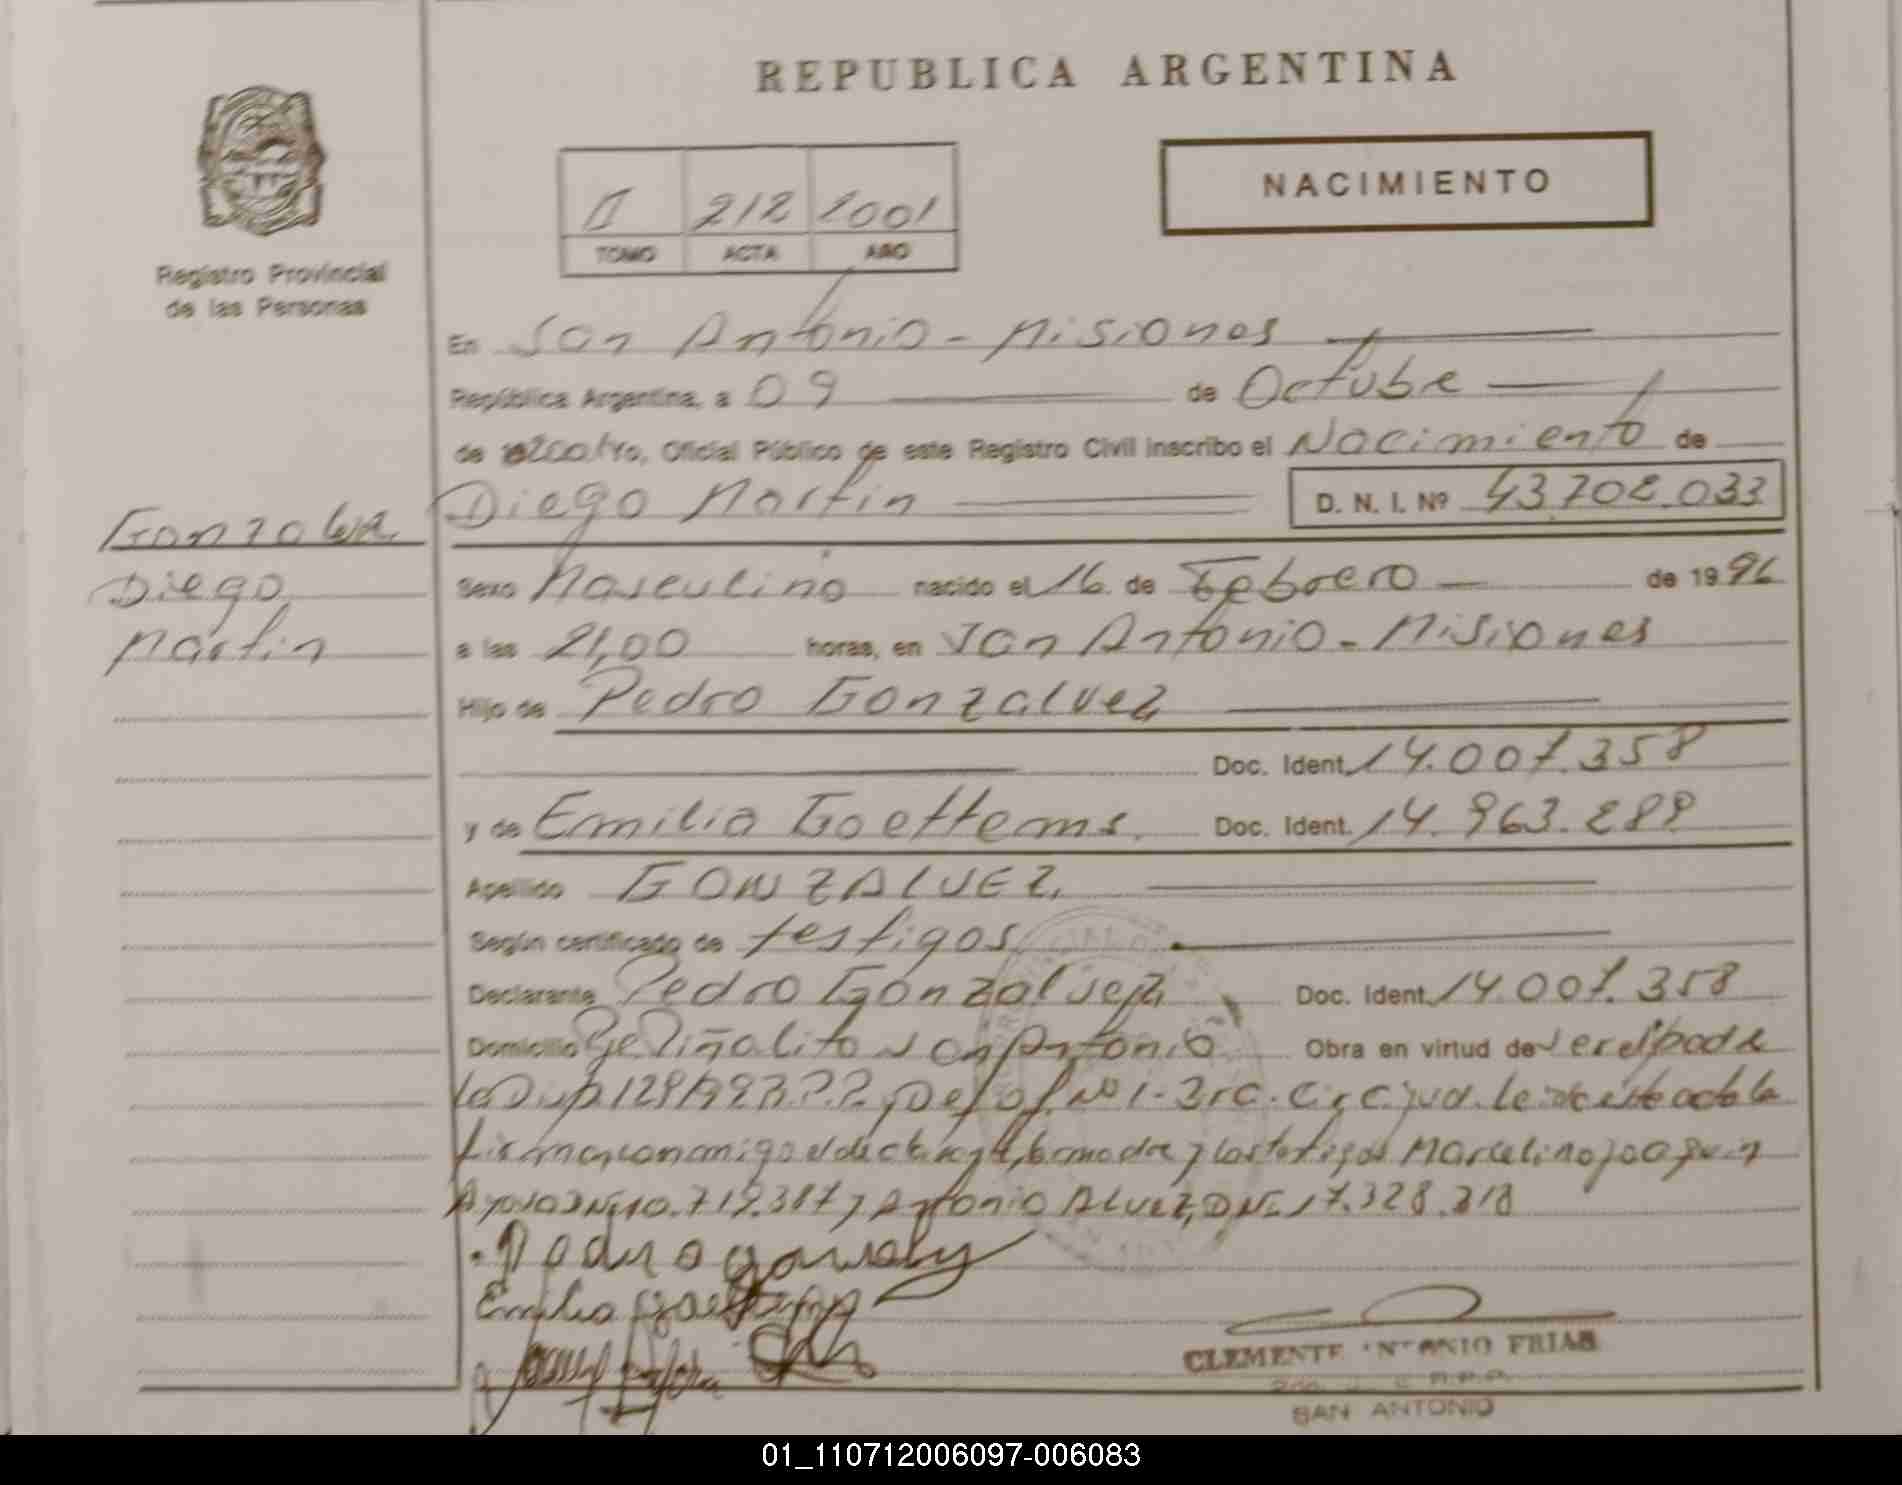 REPUBLICA ARGENTINA
NACIMIENTO
II 212 2001
TOMO ACTA AÑO
Registro Provincial
de las Personas
En San Antonio - Misiones
República Argentina, a 09 de Octubre
de Oficial Público de este Registro Civil inscribo el Nacimiento de
Diego Martin D. N. I. Nº 43.702.033
Gonzalvez
Diego
Martin
Sexo Masculino nacido el 16 de Febrero de 1996
a las 21,00 horas, en San Antonio - Misiones
Hijo de Pedro Gonzalvez
Doc. Ident. 14.007.358
y de Emilia Goettems. Doc. Ident. 14.963.289
Apellido GONZALVEZ
Según certificado de testigos
Declarante Pedro Gonzalvez Doc. Ident. 14.007.358
Domicilio Piñalito San Antonio Obra en virtud de
Def of. Nº 1 - 3ra. Circ jud.
la madre y los testigos Marcelino Joaquin
Antonio Alvez, DNI 17.328.318
Emilia
CLEMENTE ANTONIO FRIAS
SAN ANTONIO
01_110712006097-006083